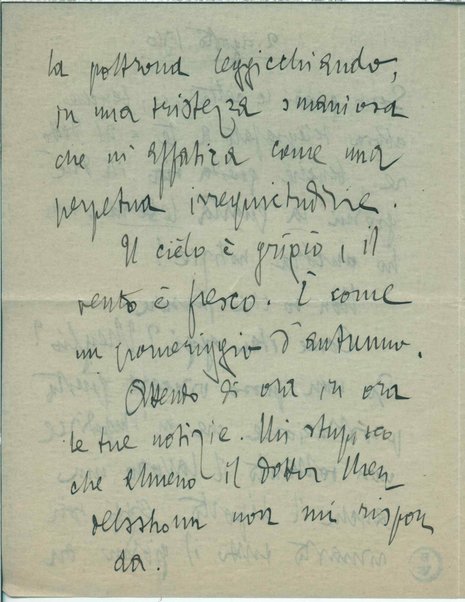 la poltrona leggicchiando,
in una tristezza smaniosa
che mi affatica come una
perpetua irrequietudine.
Il cielo è grigio, il
vento è fresco. È come
un pomeriggio d'autunno.
Attento di ora in ora
le tue notizie. Mi stupisco
che almeno il dottor Men
delssohna non mi rispon
da.